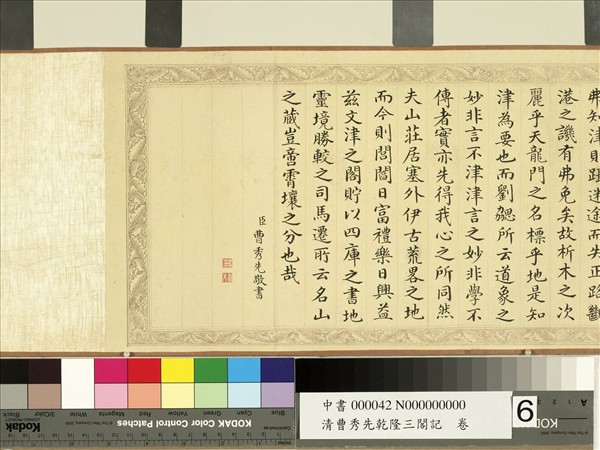 弗知津則蹈迷途而失正路斷
港之譏有弗免矣故析木之次
麗乎天龍門之名標乎地是知
津為要也而劉勰所云道象之
妙非言不津津言之妙非學不
傳者實亦先得我心之所同然
夫山莊居塞外伊古荒畧之地
而今則閭閻日富禮樂日興益
茲文津之閣貯以四庫之書地
靈境勝較之司馬遷所云名山
之藏豈啻霄壤之分也哉
臣曹秀先敬書
中書 000042 N000000000
清曹秀先乾隆三閣記 卷
6
A
KODAK Color Control Patches
Kodak
Blue Cyan Green Yellow Red Magenta White 3/Color Black